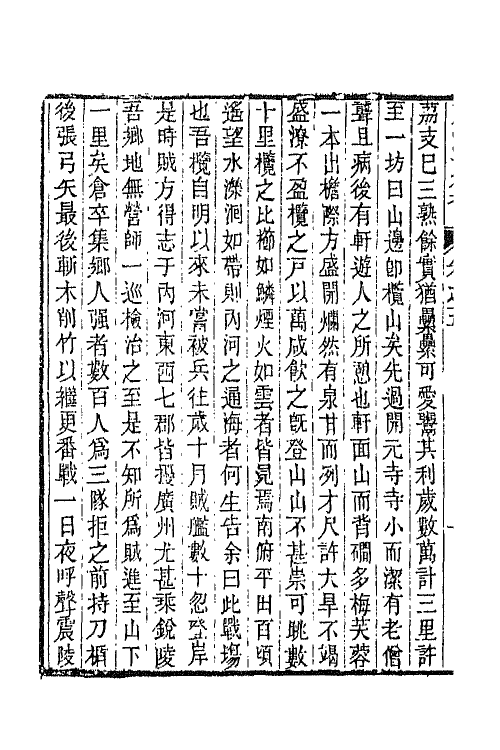 荔支巳三熟餘實猶纍纍可愛鬻其利歲數萬計三里許
至一坊曰山邊卽欖山矣先過開元寺寺小而潔有老僧
聾且病後有軒遊人之所憩也軒面山而背磵多梅芙蓉
一本出檐際方盛開爛然有泉甘而冽才尺許大旱不竭
盛潦不盈欖之戸以萬咸飮之旣登山山不甚崇可眺數
十里欖之比櫛如鱗煙火如雲者皆見焉南俯平田百頃
遙望水濼洄如帶則內河之通海者何生告余曰此戰塲
也吾欖自明以來未嘗被兵往歲十月賊艦數十忽登岸
是時賊方得志于內河東西七郡皆擾廣州尤甚乘銳陵
吾鄉地無營師一巡檢治之至是不知所爲賊進至山下
一里矣倉卒集鄉人强者數百人爲三隊拒之前持刀楯
後張弓矢最後斬木削竹以繼更番戰一日夜呼聲震陵